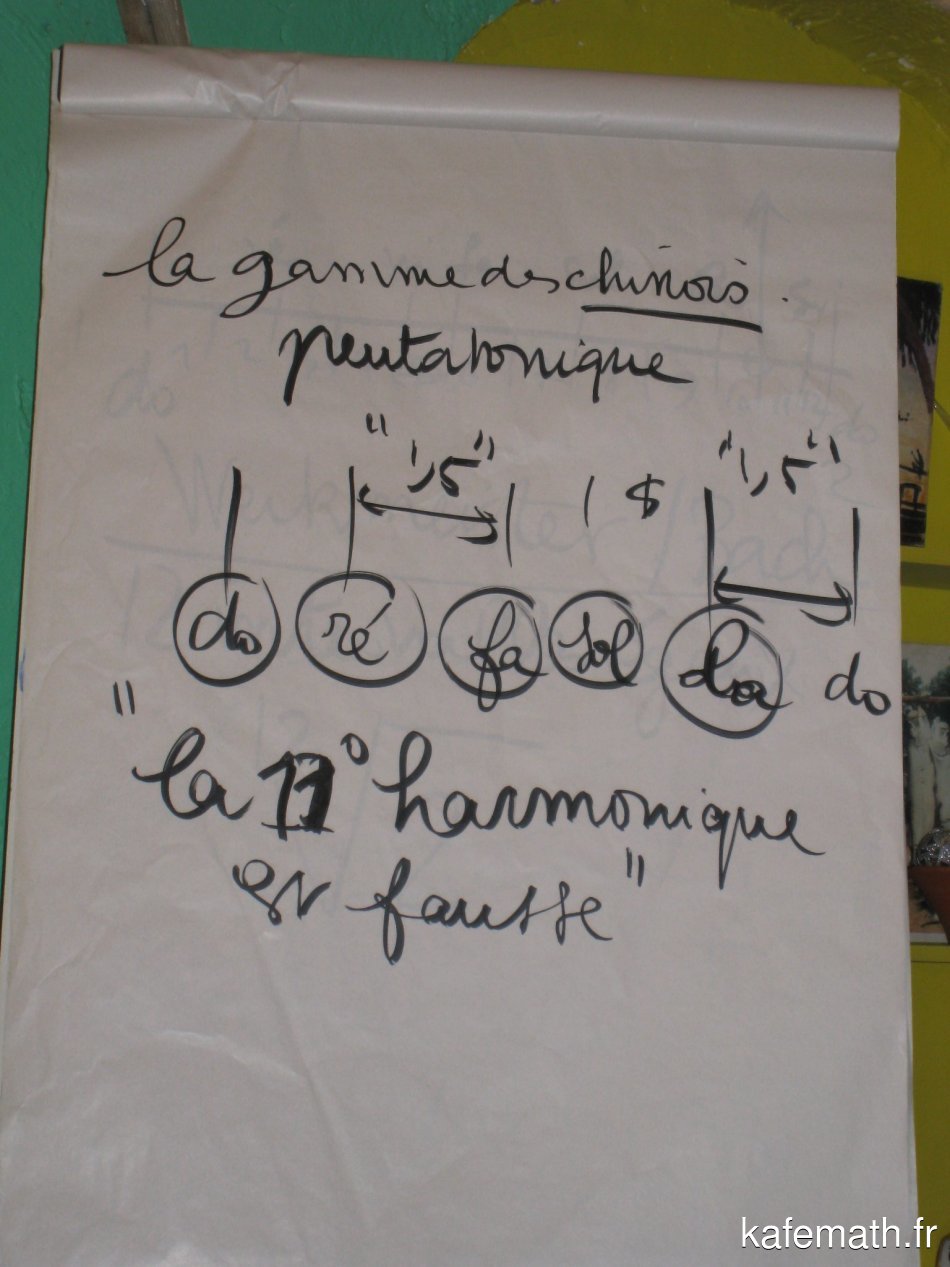 la gamme des chinois.
pentatonique
"1,5" "1,5"
do ré fa sol la do
"la 11° harmonique
est fausse"
kafemath.fr